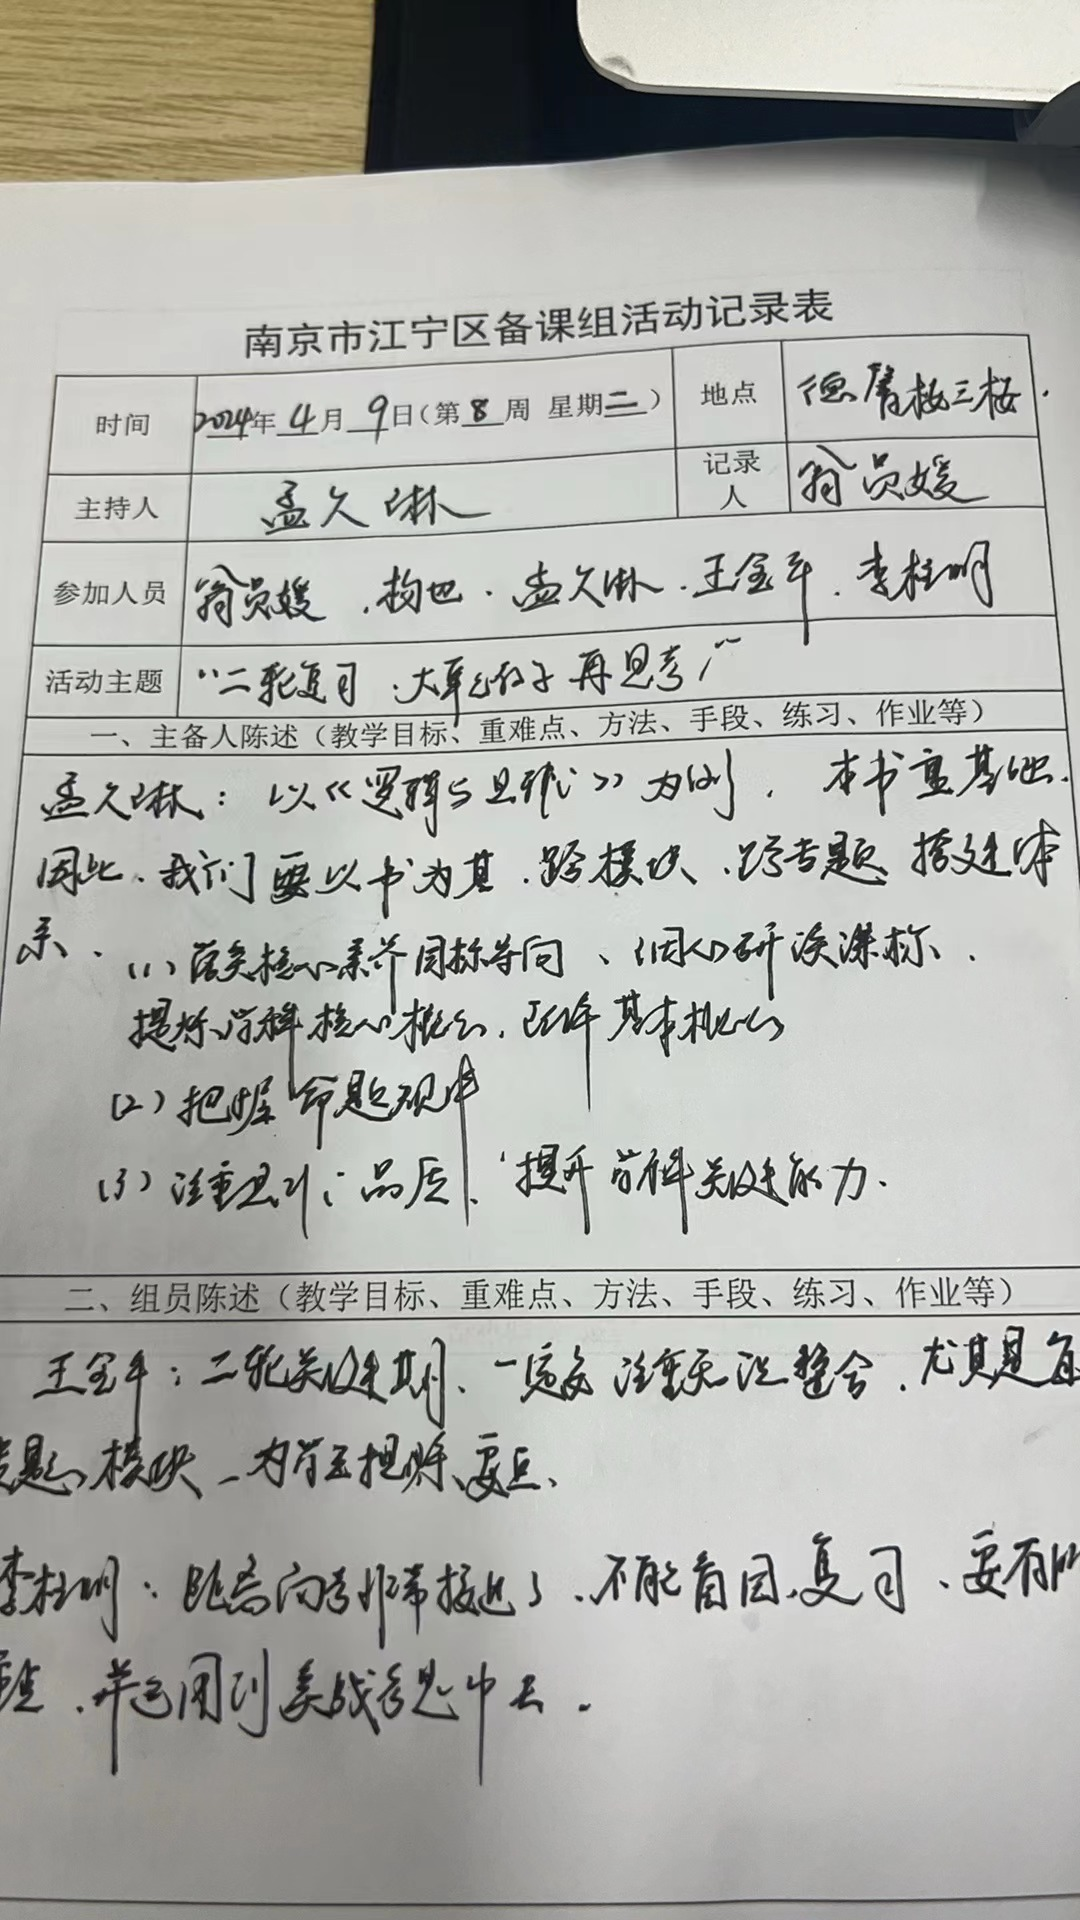 南京市江宁区备课组活动记录表
时间 2024年 4月 9日(第 8 周 星期二) 地点 德育楼三楼.
主持人 孟久琳 记录人 翁员媛
参加人员 翁员媛、孟久琳、王金平、李桂明
活动主题 “二轮复习、大单元教学再思考”
一、主备人陈述(教学目标、重难点、方法、手段、练习、作业等)
孟久琳：以《逻辑与思维》为例，本书重基础.
因此、我们要以书为基、跨模块、跨专题 搭建体
系、(1)落实核心素养目标导向、研读课标、
提炼学科核心概念、基本概念
(2)把握命题规律
(3)注重思维品质、提升学科关键能力.
二、组员陈述(教学目标、重难点、方法、手段、练习、作业等)
王金平：二轮关键期、一定要注重知识整合、尤其是每
专题、模块、为学生提炼要点、
李桂明：距离高考非常接近了、不能盲目复习、要有所
并运用到实战考题中去.